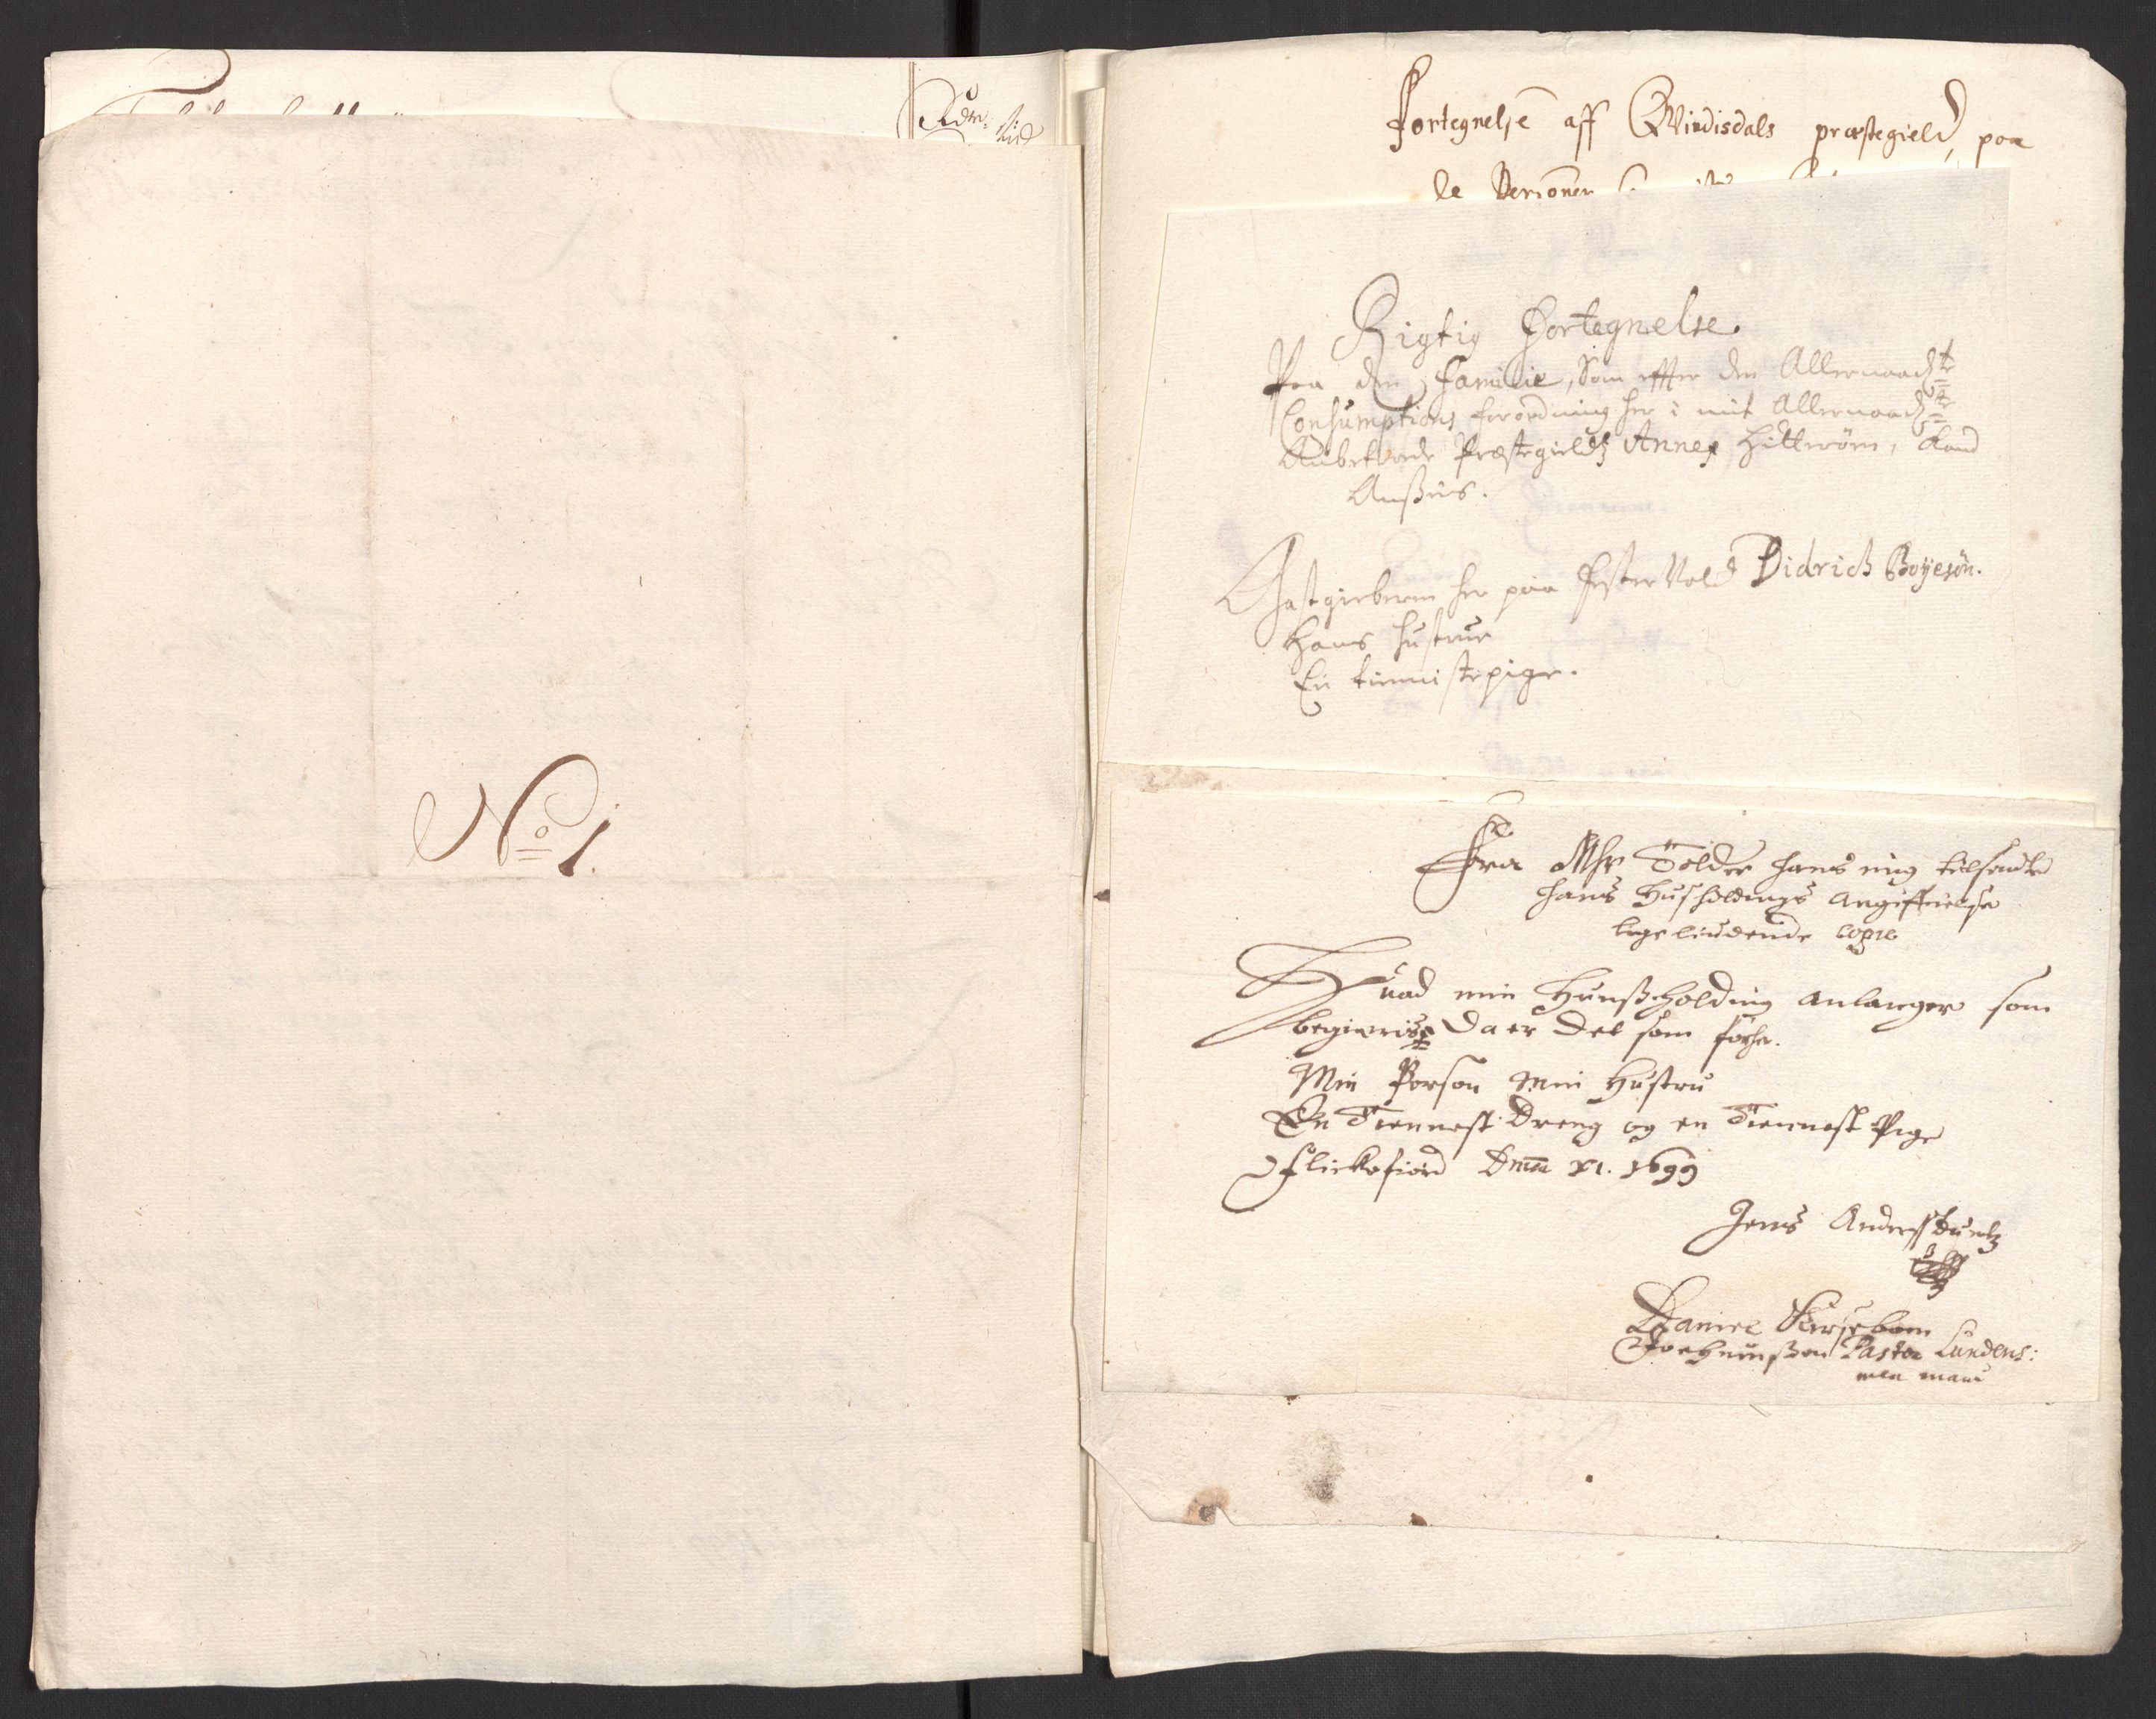 No 1.
Fortegnelse aff Qvindisdals præstegield, paa
de Personer
Rigtig Fortegnelse.
Paa den Familie, Som effter den Allernaadste
Consumptions forordning her i mit Allernaadste
Anbetroede Præstegieldz Annex Hitterøen, kand
Ansees.
Gastgieberen her paa Didrich Boÿesøn.
Hans Hustrue
En tienniste pige.
Fra Mhr Tolder hans mig tilsendte
hans Husholdings angiffvelse
lige liudende copie
Huad min Hunßholding anlanger som
begieris, Da er det som følger.
Min Person Min Hustru
En Tiennest Dreng og en Tiennest Pige
Flickefiord D 1699
Jens Anders
Daniel
Pastor Lundens:
mea manu